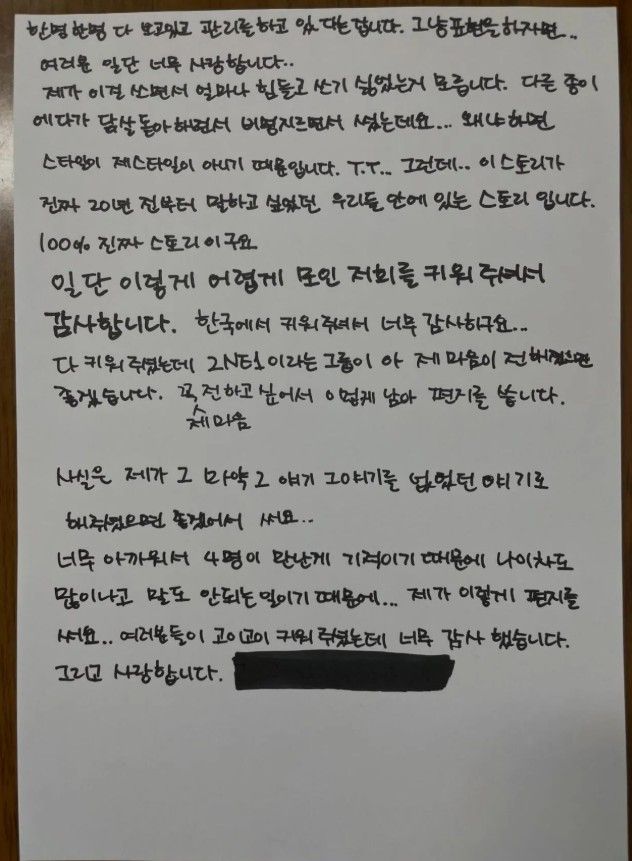 한명한명 다 보고있고 관리를하고 있 다는 겁니다. 그냥 표현을하자면..
여러분 일단 너무 사랑합니다..
제가 이걸 쓰면서 얼마나 힘들고 쓰기 싫었는지 모릅니다. 다른 종이
에다가 닭살 돋아 하면서 비명지르면서 썼는데요... 왜냐하면
스타일이 제스타일이 아니기 때문입니다. T.T... 그런데.. 이 스토리가
진짜 20년 전부터 말하고 싶었던 우리들 안에 있는 스토리 입니다.
100% 진짜 스토리 이구요
일단 이렇게 어렵게 모인 저희를 키워 주셔서
감사합니다. 한국에서 키워주셔서 너무 감사하구요...
다 키워 주셨는데 2NE1 이라는 그룹이 아 제 마음이 전해졌으면
좋겠습니다. 꼭 전하고 싶어서 어렵게 남아 편지를 씁니다.
제 마음
사실은 제가 그 마약 그 얘기 그얘기를 없었던 얘기로
해주셨으면 좋겠어서 써요..
너무 아까워서 4명이 만난게 기적이기 때문에 나이차도
많이나고 말도 안되는 일이기 때문에... 제가 이렇게 편지를
써요.. 여러분들이 고이고이 키워 주셨는데 너무 감사 했습니다.
그리고 사랑합니다.